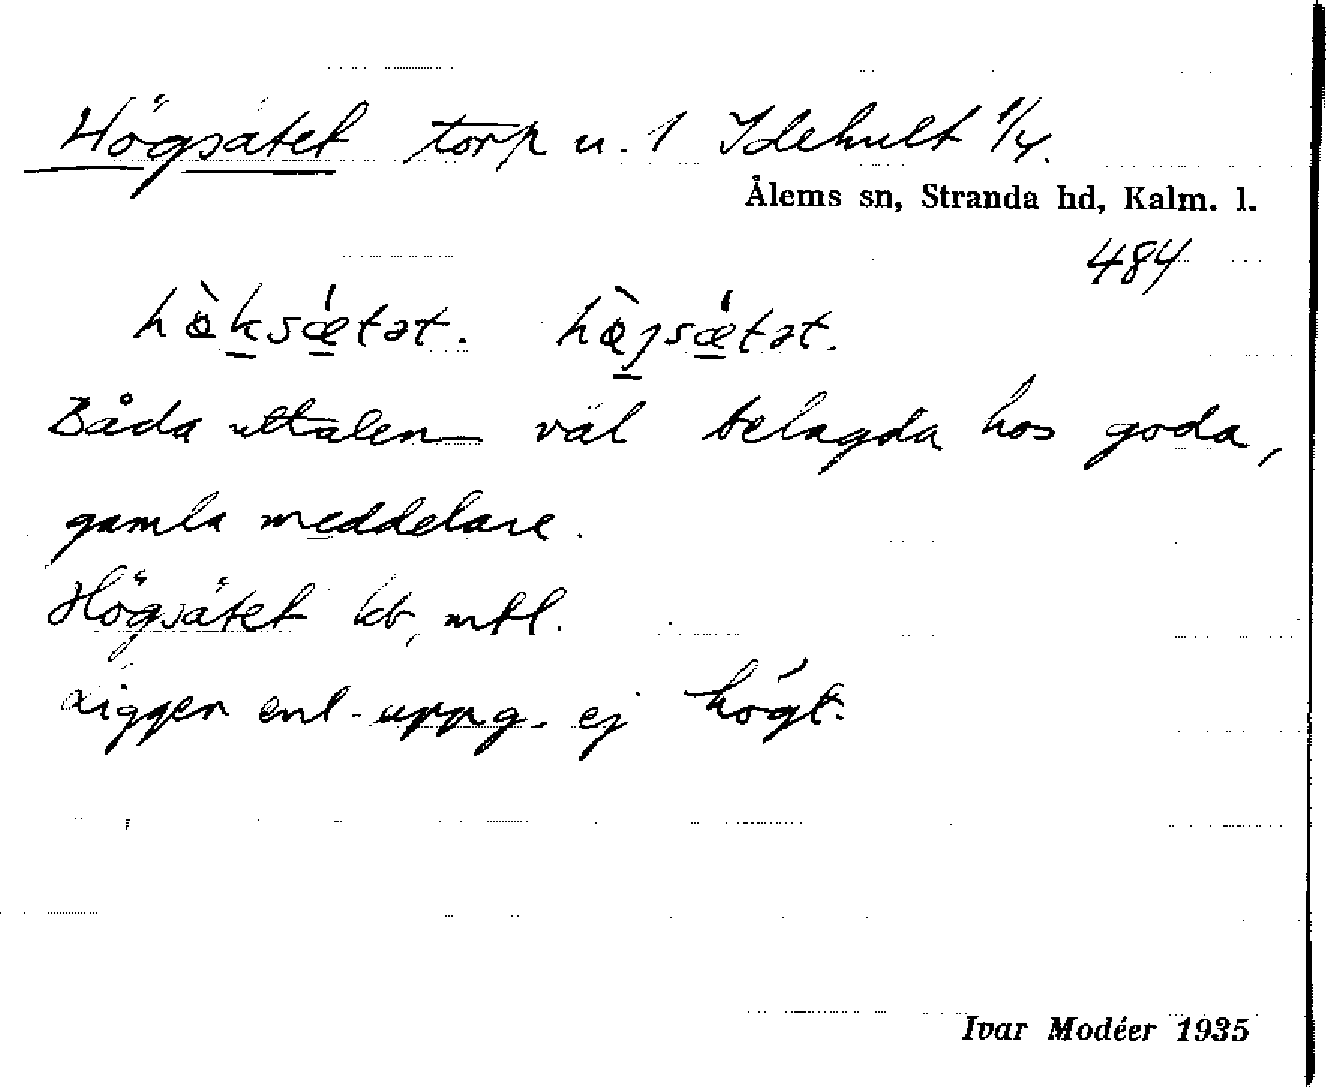 Högsätet torp u. 1 Idehult 1/4.
Ålems sn, Stranda hd, Kalm. l.
484
hø̀ksǽtət. hø̀jsǽtət.
Båda uttalen väl belagda hos goda,
gamla meddelare.
Högsätet kb, mtl.
Ligger enl. uppg. ej högt.
Ivar Modéer 1935